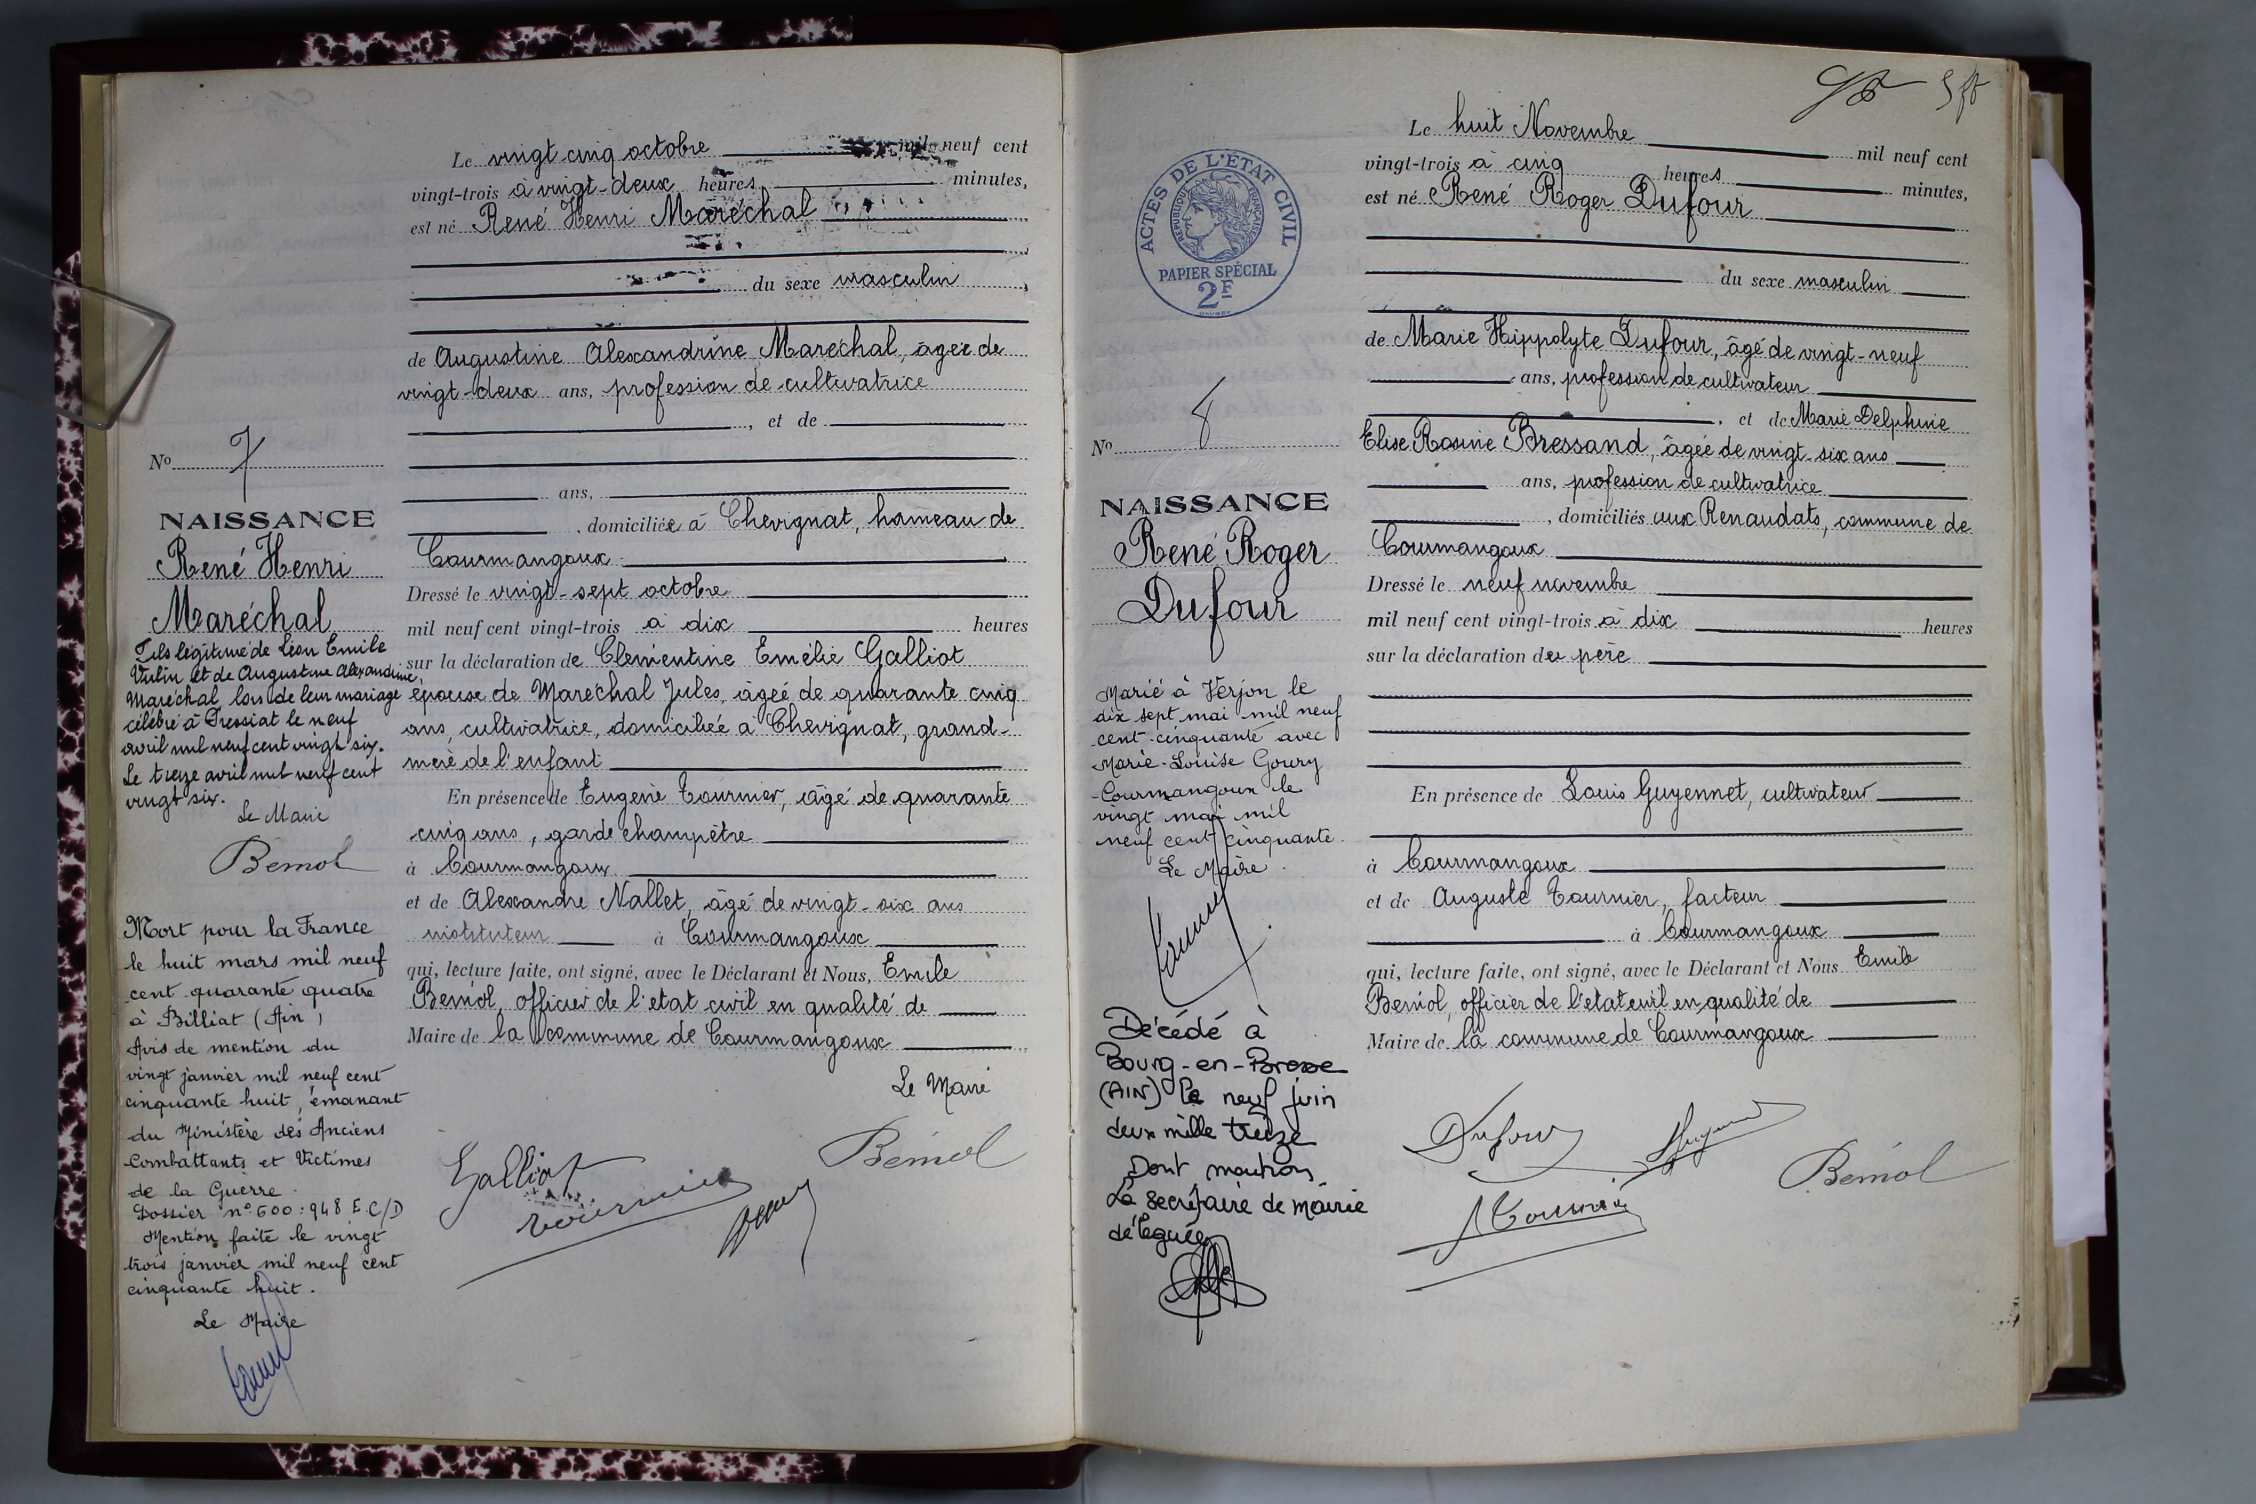 Le vingt-cinq octobre mil neuf cent
vingt-trois à vingt-deux heures minutes,
est né René Henri Maréchal
du sexe masculin
de Augustine Alexandrine Maréchal, âgée de
vingt-deux ans, profession de cultivatrice
, et de
ans,
, domiciliée à Chevignat, hameau de
Courmangoux
Dressé le vingt-sept octobre
mil neuf cent vingt-trois à dix heures
sur la déclaration de Clémentine Emélie Galliot
épouse de Maréchal Jules, âgée de quarante cinq
ans, cultivatrice, domiciliée à Chevignat, grand-
mère de l'enfant
En présence de Eugène Tournier, âgé de quarante
cinq ans, garde champêtre
à Courmangoux
et de Alexandre Nallet, âgé de vingt-six ans
instituteur à Courmangoux
qui, lecture faite, ont signé, avec le Déclarant et Nous, Emile
Bémol, officier de l'état civil en qualité de
Maire de la commune de Courmangoux
Le Maire
Galliot
Tournier
Bémol
No 7
NAISSANCE
René Henri
Maréchal
Fils légitimé de Léon Emile
et de Augustine Alexandrine
Maréchal, lors de leur mariage
célébré à Pressiat le neuf
avril mil neuf cent vingt six.
Le treize avril mil neuf cent
vingt six.
Le Maire
Bémol
Mort pour la France
le huit mars mil neuf
cent quarante quatre
à Billiat (Ain)
Avis de mention du
vingt janvier mil neuf cent
cinquante huit, émanant
du Ministère des Anciens
Combattants et Victimes
de la Guerre.
Dossier n° 600.948 E.C/D
Mention faite le vingt
trois janvier mil neuf cent
cinquante huit.
Le Maire
ACTES DE L'ÉTAT CIVIL
RÉPUBLIQUE FRANÇAISE
PAPIER SPÉCIAL
2F
Le huit Novembre mil neuf cent
vingt-trois à cinq heures minutes,
est né René Roger Dufour
du sexe masculin
de Marie Hippolyte Dufour, âgé de vingt-neuf
ans, profession de cultivateur
, et de Marie Delphine
Elise Rosine Bressand, âgée de vingt-six ans
ans, profession de cultivatrice
, domiciliés aux Renaudats, commune de
Courmangoux
Dressé le neuf novembre
mil neuf cent vingt-trois à dix heures
sur la déclaration du père
En présence de Louis Guyennet, cultivateur
à Courmangoux
et de Auguste Tournier, facteur
à Courmangoux
qui, lecture faite, ont signé, avec le Déclarant et Nous Emile
Bémol, officier de l'état civil en qualité de
Maire de la commune de Courmangoux
Dufour
Bémol
Tournier
No 8
NAISSANCE
René Roger
Dufour
Marié à Verjon le
dix sept mai mil neuf
cent cinquante avec
Marie-Louise Goury
Courmangoux le
vingt mai mil
neuf cent cinquante.
Le Maire.
Décédé à
Bourg-en-Bresse
(AIN) le neuf juin
deux mille treize
Dont mention
La secrétaire de Mairie
déléguée